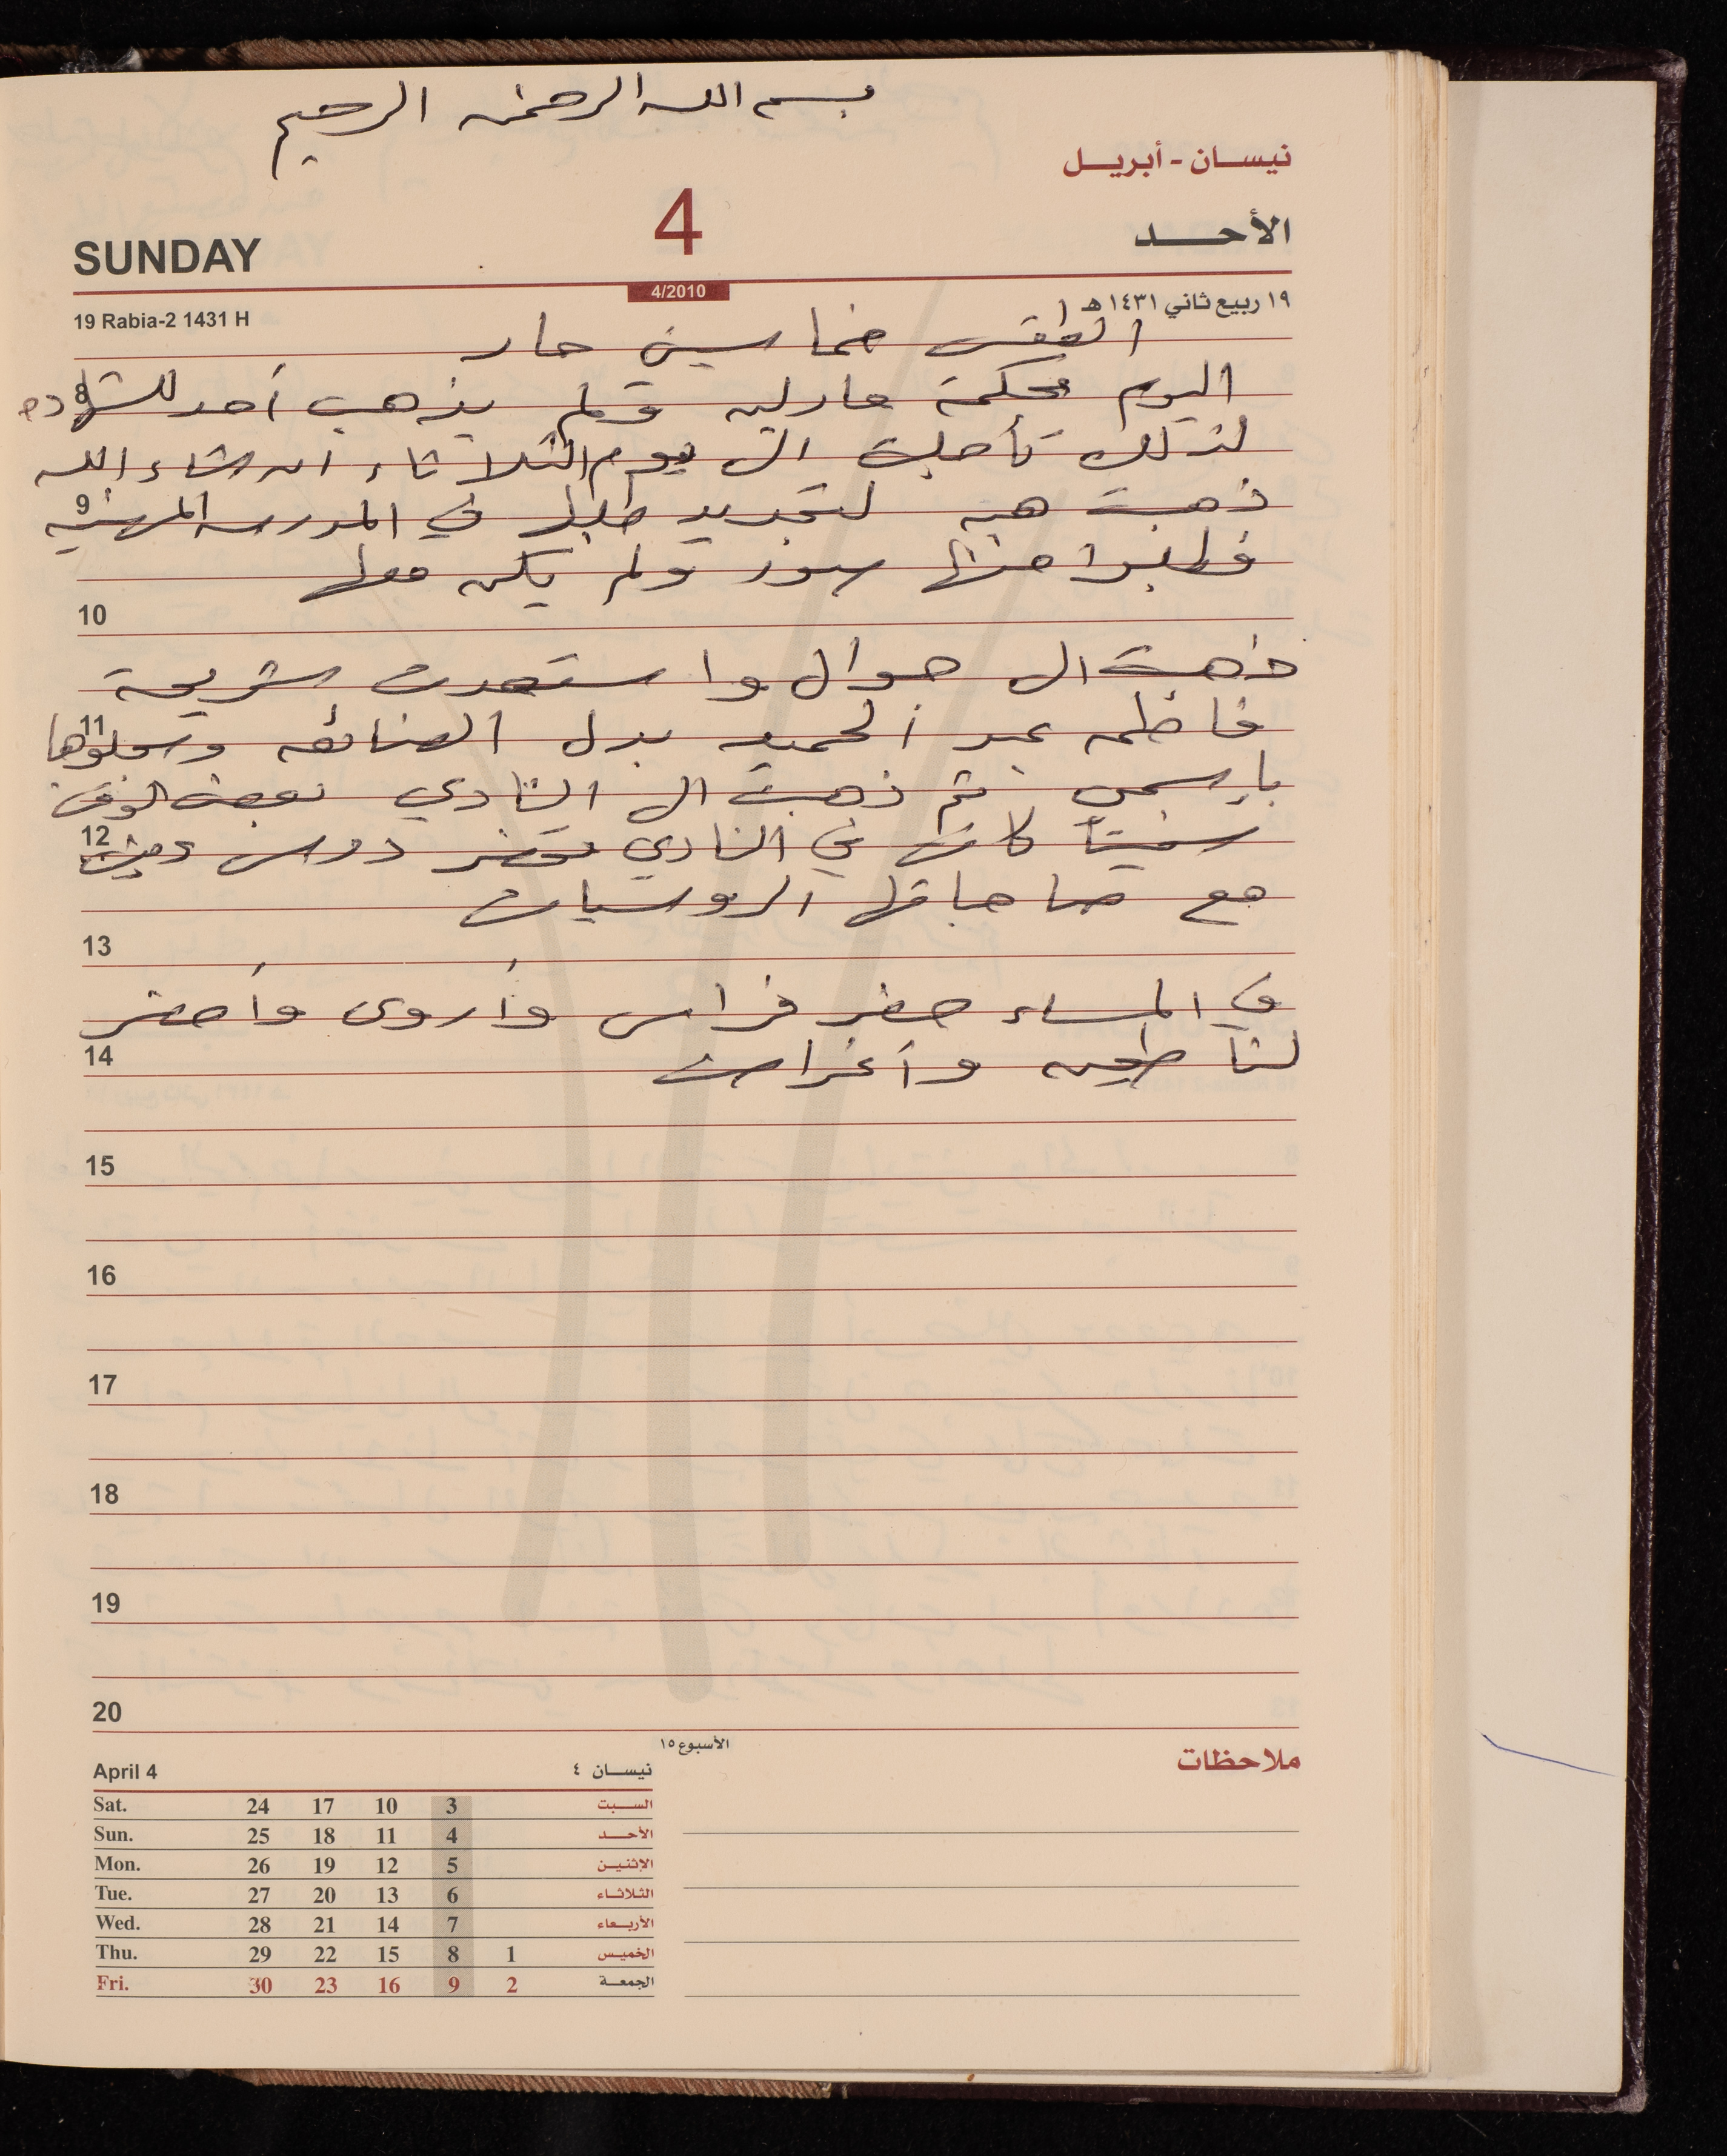 بسم الله الرحمن الرحيم
نيسان - أبريل
SUNDAY 4 الأحد
4/2010
19 Rabia-2 1431 H ١٩ ربيع ثاني ١٤٣١ هـ
الطقس خماسين حار
اليوم محكمة مارلين ولم يذهب أحد للشهاده
8
لذلك تأجلت الى يوم الثلاثاء ان شاء الله
ذهبت هبه لتجديد طلبها في المدرسه المهنيه
9
فطلبوا منها صور ولم يكن معها
10
ذهبت الى جوال واستعدت شريحة
فاطمه عبد الحميد بدل الضائعه وسجلوها
11
بإسمي ثم ذهبت الى النادي بعض الوقت
سفيتا كانت في النادي تحضر درس دين
12
مع صاحباتها الروسيات
13
في المساء حضر فراس وأروى وأحضر
لنا طحين وأغراض
14
15
16
17
18
19
20
الأسبوع ١٥
April 4 نيسان ٤
ملاحظات
Sat. 24 17 10 3 السبت
Sun. 25 18 11 4 الأحد
Mon. 26 19 12 5 الإثنين
Tue. 27 20 13 6 الثلاثاء
Wed. 28 21 14 7 الأربعاء
Thu. 29 22 15 8 1 الخميس
Fri. 30 23 16 9 2 الجمعة